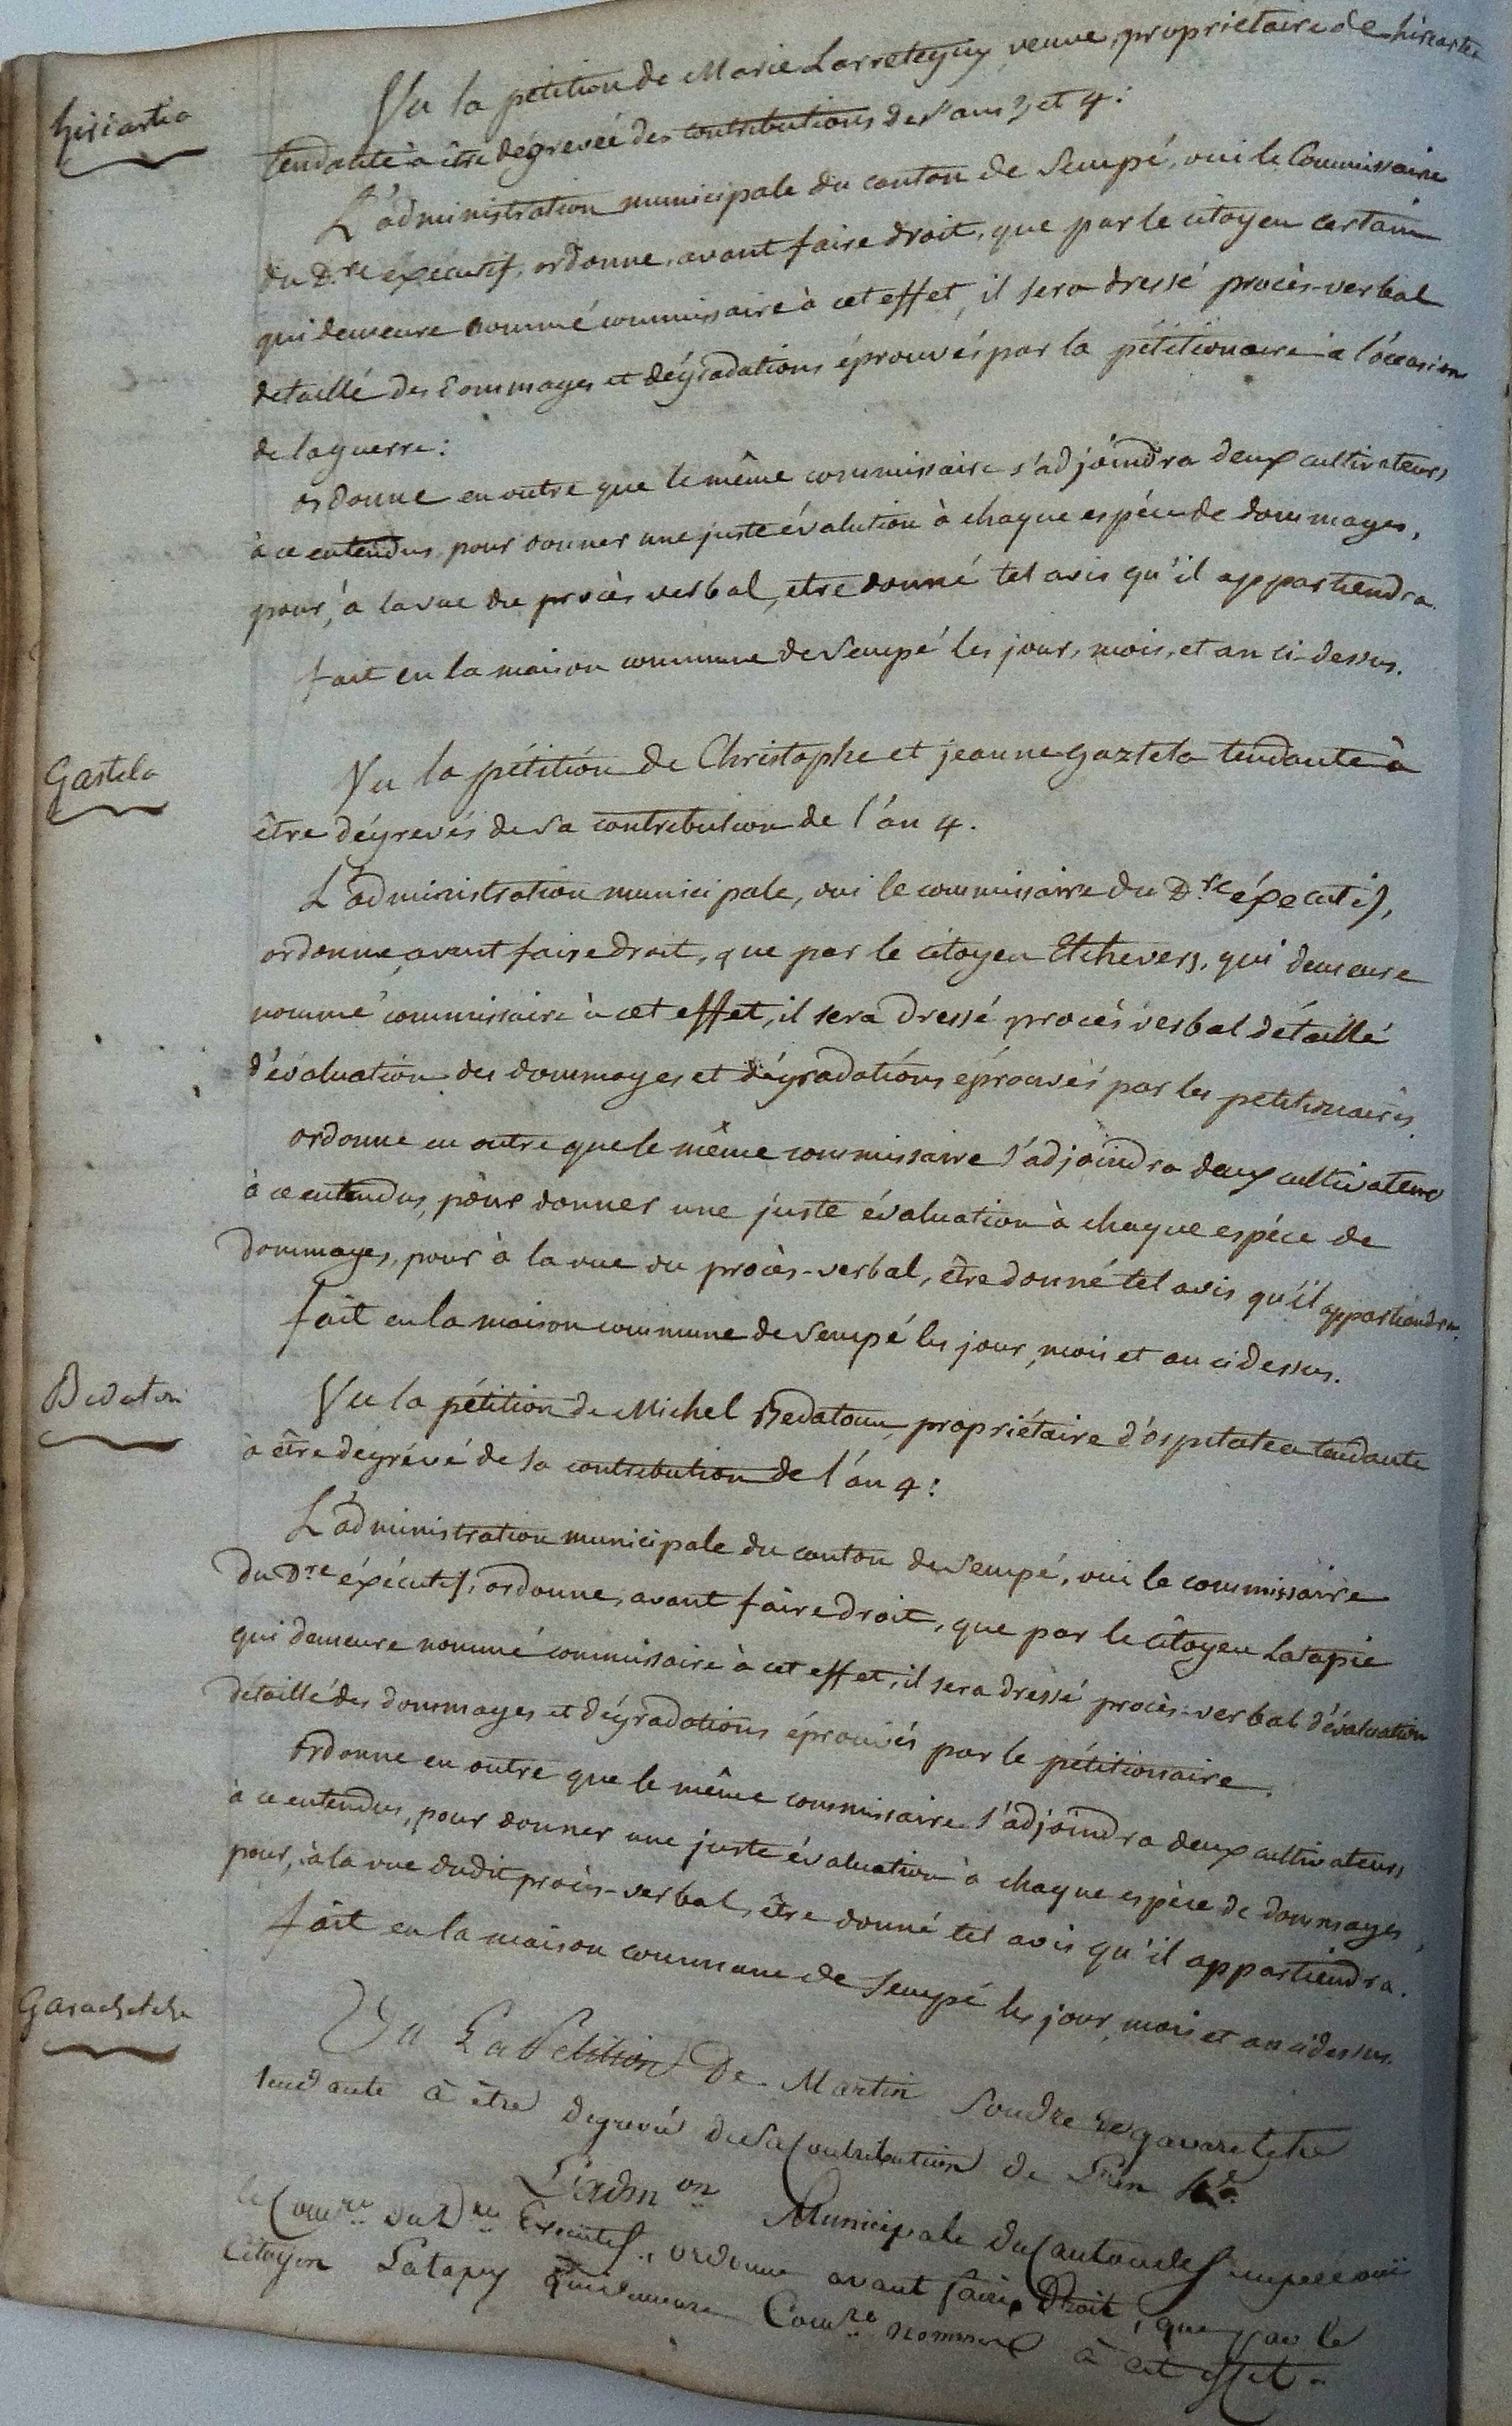 hiriartia
Vu la pétition de Marie Larreteguy veuve, propriétaire de hiriartia
tendante à être dégrevée des contributions des ans 3 et 4 :
L'administration municipale du canton de Sempé, oui le Commissaire
du D.re éxécutif, ordonne, avant faire droit, que par le citoyen certain
qui demeure nommé commissaire à cet effet, il sera dressé procès-verbal
detaillé des dommages et dégradations éprouvés par la pétitionaire à l'occasion
de la guerre :
ordonne en outre que le même commissaire s'adjoindra deux cultivateurs
à ce entendus pour donner une juste évalution à chaque espéce de dommages,
pour, à la vue du procès verbal, etre donné tel avis qu'il appartiendra.
fait en la maison commune de Sempé les jour, mois, et an ci-dessus.
Gastela
Vu la pétition de Christophe et jeanne gaztela tendante à
être dégrevés de sa contribution de l'an 4.
L'administration municipale, oui le commissaire du D.re éxecutif,
ordonne, avant faire droit, que par le citoyen Etchevers, qui demeure
nommé commissaire à cet effet, il sera dressé procès verbal détaillé
d'évaluation des dommages et dégradations éprouvés par les petitionaires.
ordonne en outre que le même commissaire s'adjoindra deux cultivateurs
à ce entendus, pour donner une juste évaluation à chaque espéce de
dommages, pour à la vue du procès-verbal, être donné tel avis qu'il appartiendra.
fait en la maison commune de Sempé les jour, mois et an ci dessus.
Vu la pétition de Michel Bedatoun, propriétaire d'ospitalea tendante
à être dégrévé de sa contribution de l'an 4 :
L'administration municipale du canton de Sempé, oui le commissaire
du D.re éxécutif, ordonne, avant faire droit, que par le citoyen Latapie
qui demeure nommé commissaire à cet effet, il sera dressé procès-verbal d'évaluation
détaillé des dommages et dégradations éprouvés par le pétitionaire.
ordonne en outre que le même commissaire s'adjoindra deux cultivateurs
à ce entendus, pour donner une juste évaluation à chaque espèce de dommages,
pour, à la vue dudit procès-verbal, être donné tel avis qu'il appartiendra.
fait en la maison commune de Sempé les jour, mois et an ci dessus.
Vu La Petition De Martin
tendante à être degrevé de sa Contribution de L'an
L'adm.on Municipale du Canton de Sempée oui
le Com.re du D.re Executif, ordonne avant faire Droit, que par le
Citoyen Latapy qui demeure Com.re nommé à cet effet